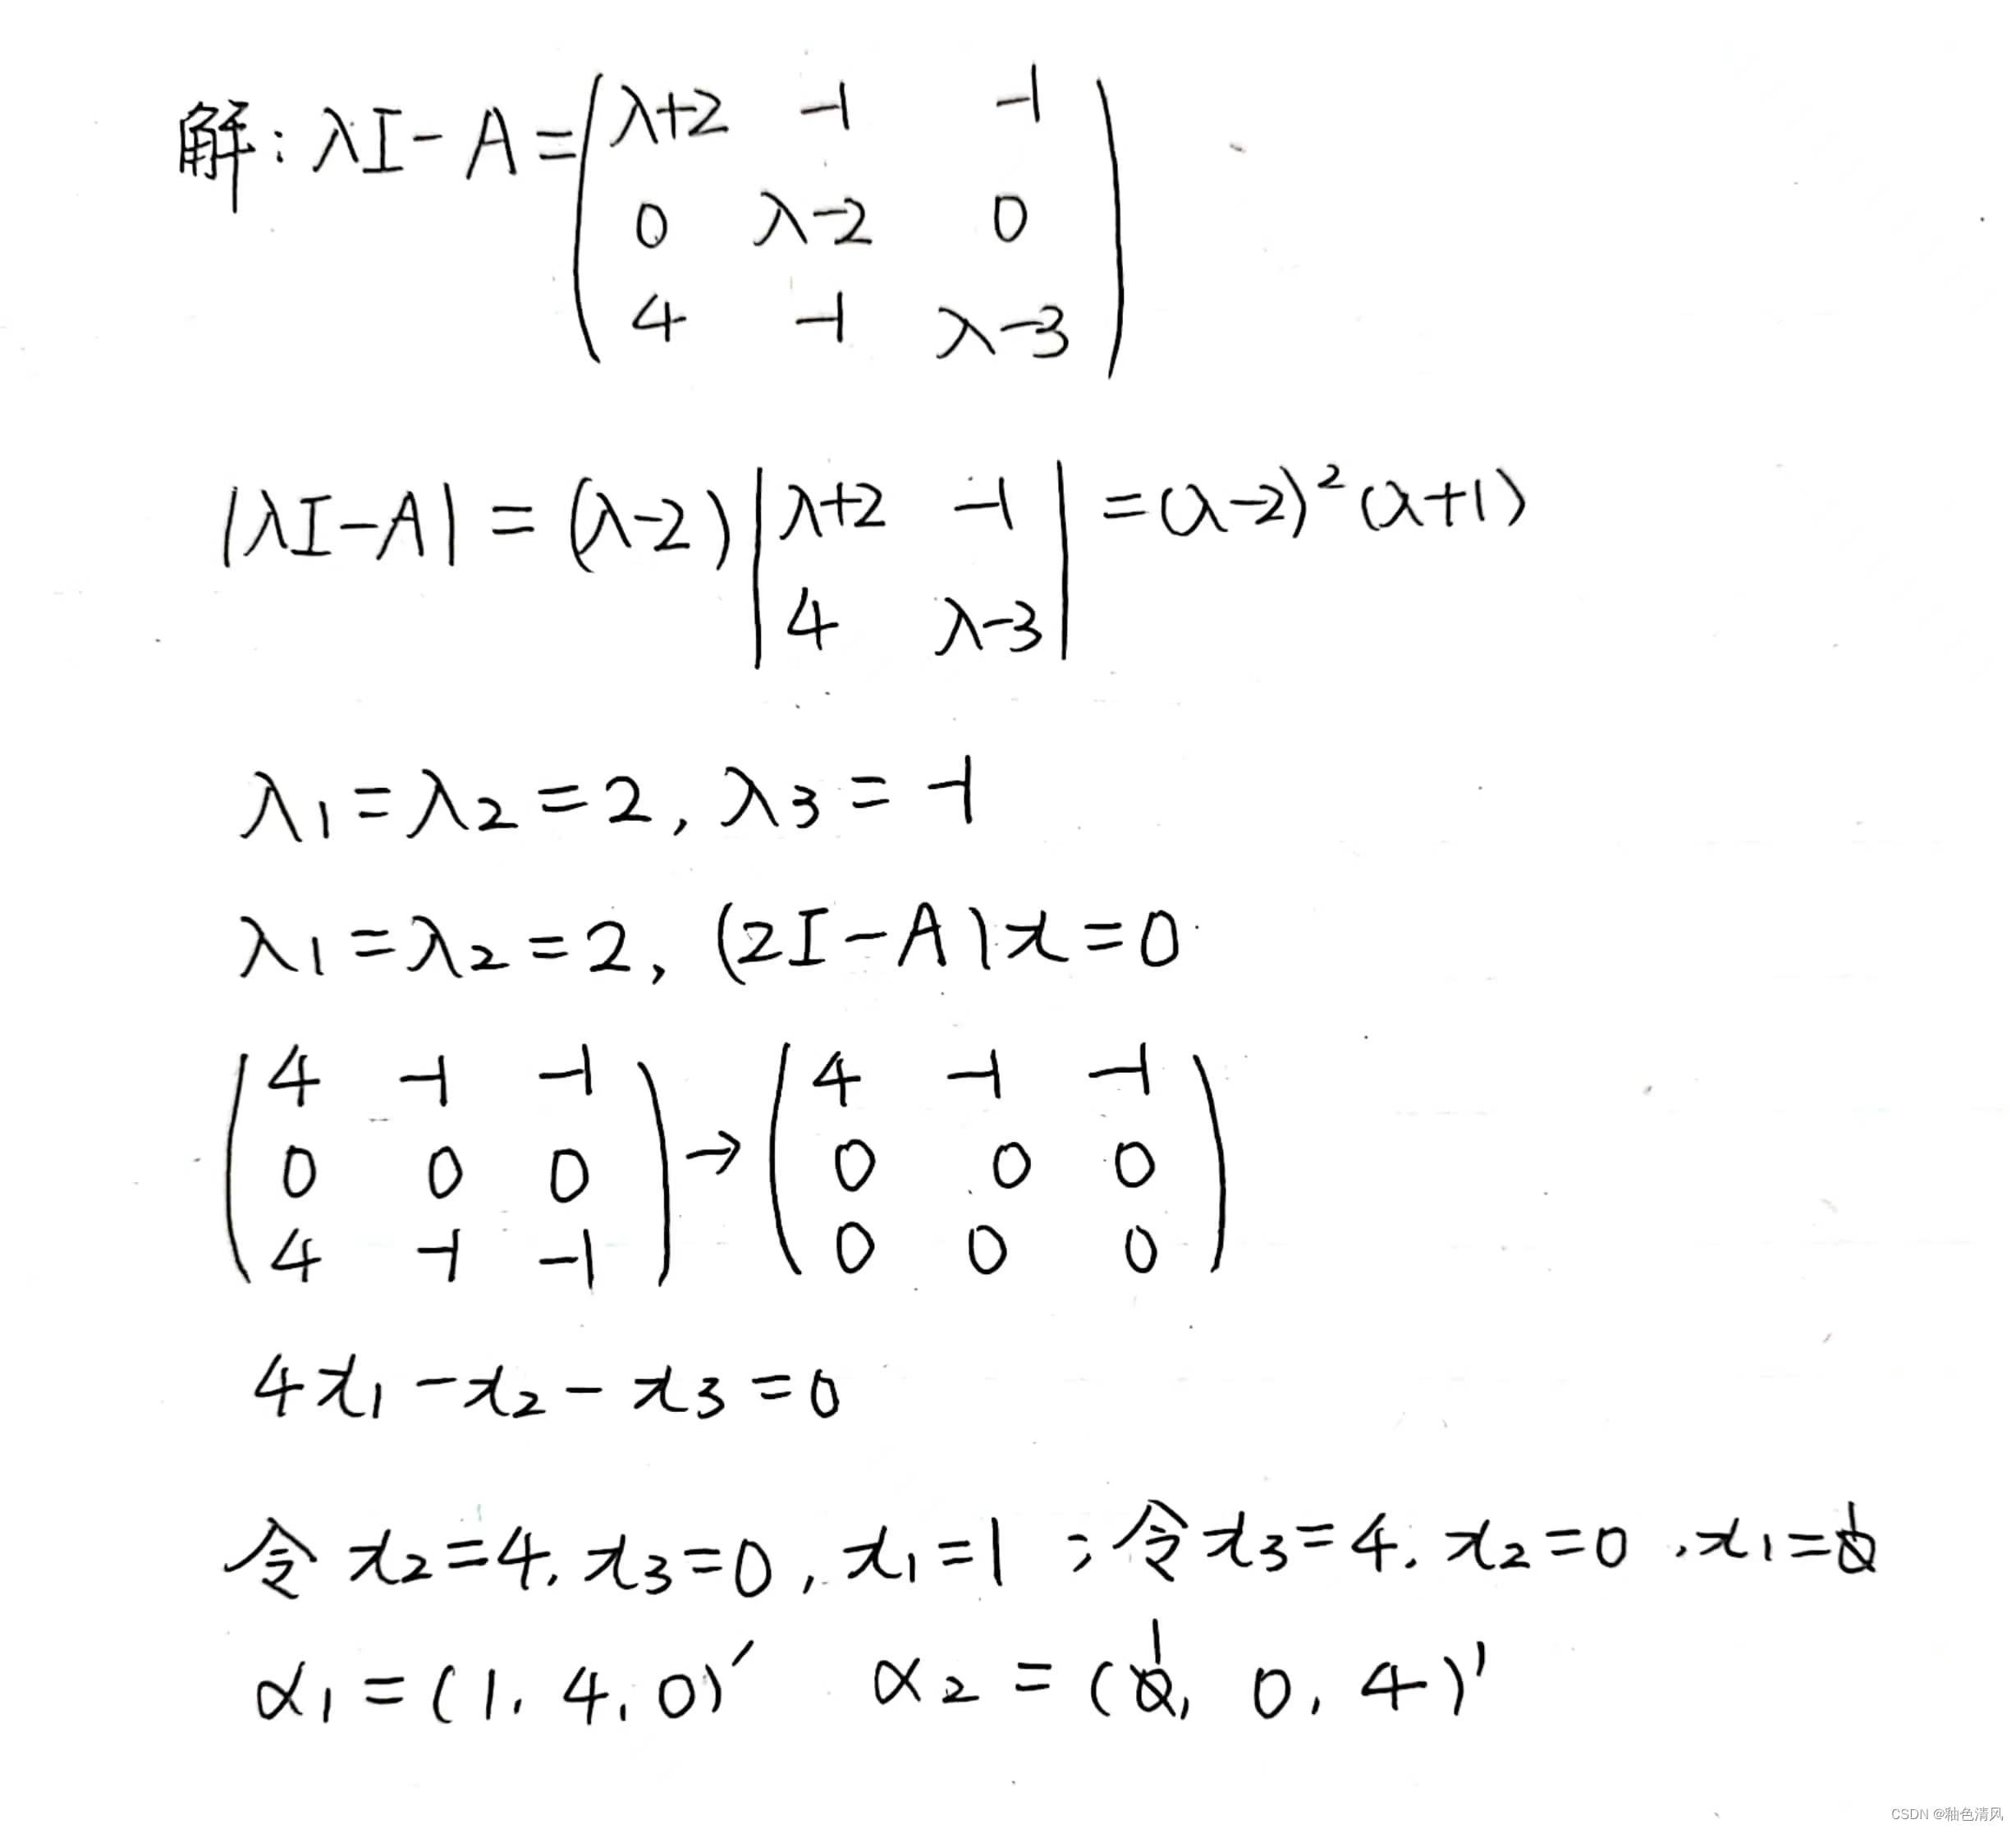 解: λI-A = (λ+2 -1 -1
0 λ-2 0
4 -1 λ-3)
|λI-A| = (λ-2) |λ+2 -1
4 λ-3| = (λ-2)² (λ+1)
λ1=λ2=2, λ3=-1
λ1=λ2=2, (2I-A)x=0
(4 -1 -1
0 0 0
4 -1 -1) → (4 -1 -1
0 0 0
0 0 0)
4x1-x2-x3=0
令 x2=4, x3=0, x1=1; 令x3=4, x2=0, x1=1
α1=(1, 4, 0)' α2=(1, 0, 4)'
CSDN @釉色清风